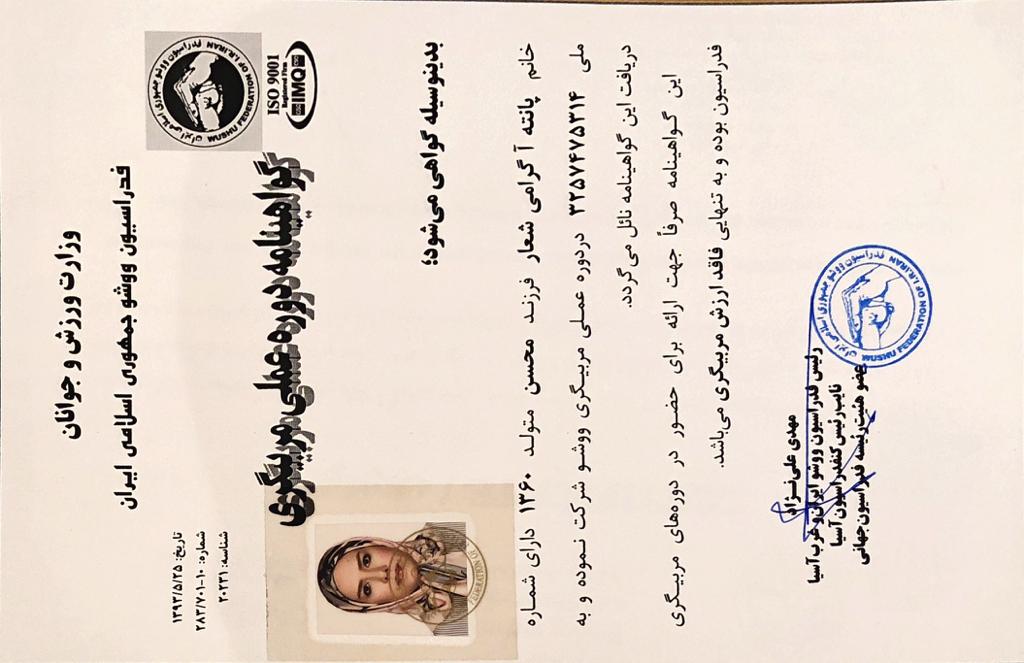 وزارت ورزش و جوانان
فدراسیون ووشو جمهوری اسلامی ایران
فدراسیون ووشو جمهوری اسلامی ایران
WUSHU FEDERATION OF I.R.IRAN
ISO 9001
Registered Firm
IMQ
تاریخ: ۱۳۹۳/۵/۲۵
شماره: ۱۰-۲۸۳/۷۰۱
شناسه: ۲۰۲۳۱
گواهینامه دوره عملی مربیگری
بدینوسیله گواهی می‌شود؛
خانم پانته آ گرامی شعار فرزند محسن متولد ۱۳۶۰ دارای شماره
ملی ۳۲۵۷۴۷۵۳۱۴ دردوره عملی مربیگری ووشو شرکت نموده و به
دریافت این گواهینامه نائل می‌گردد.
این گواهینامه صرفاً جهت ارائه برای حضور در دوره‌های مربیگری
فدراسیون بوده و به تنهایی فاقد ارزش مربیگری می‌باشد.
مهدی علی‌نژاد
رئیس فدراسیون ووشو ایران و غرب آسیا
نایب رئیس کنفدراسیون آسیا
عضو هئیت رئیسه فدراسیون جهانی
فدراسیون ووشو جمهوری اسلامی ایران
WUSHU FEDERATION OF I.R.IRAN